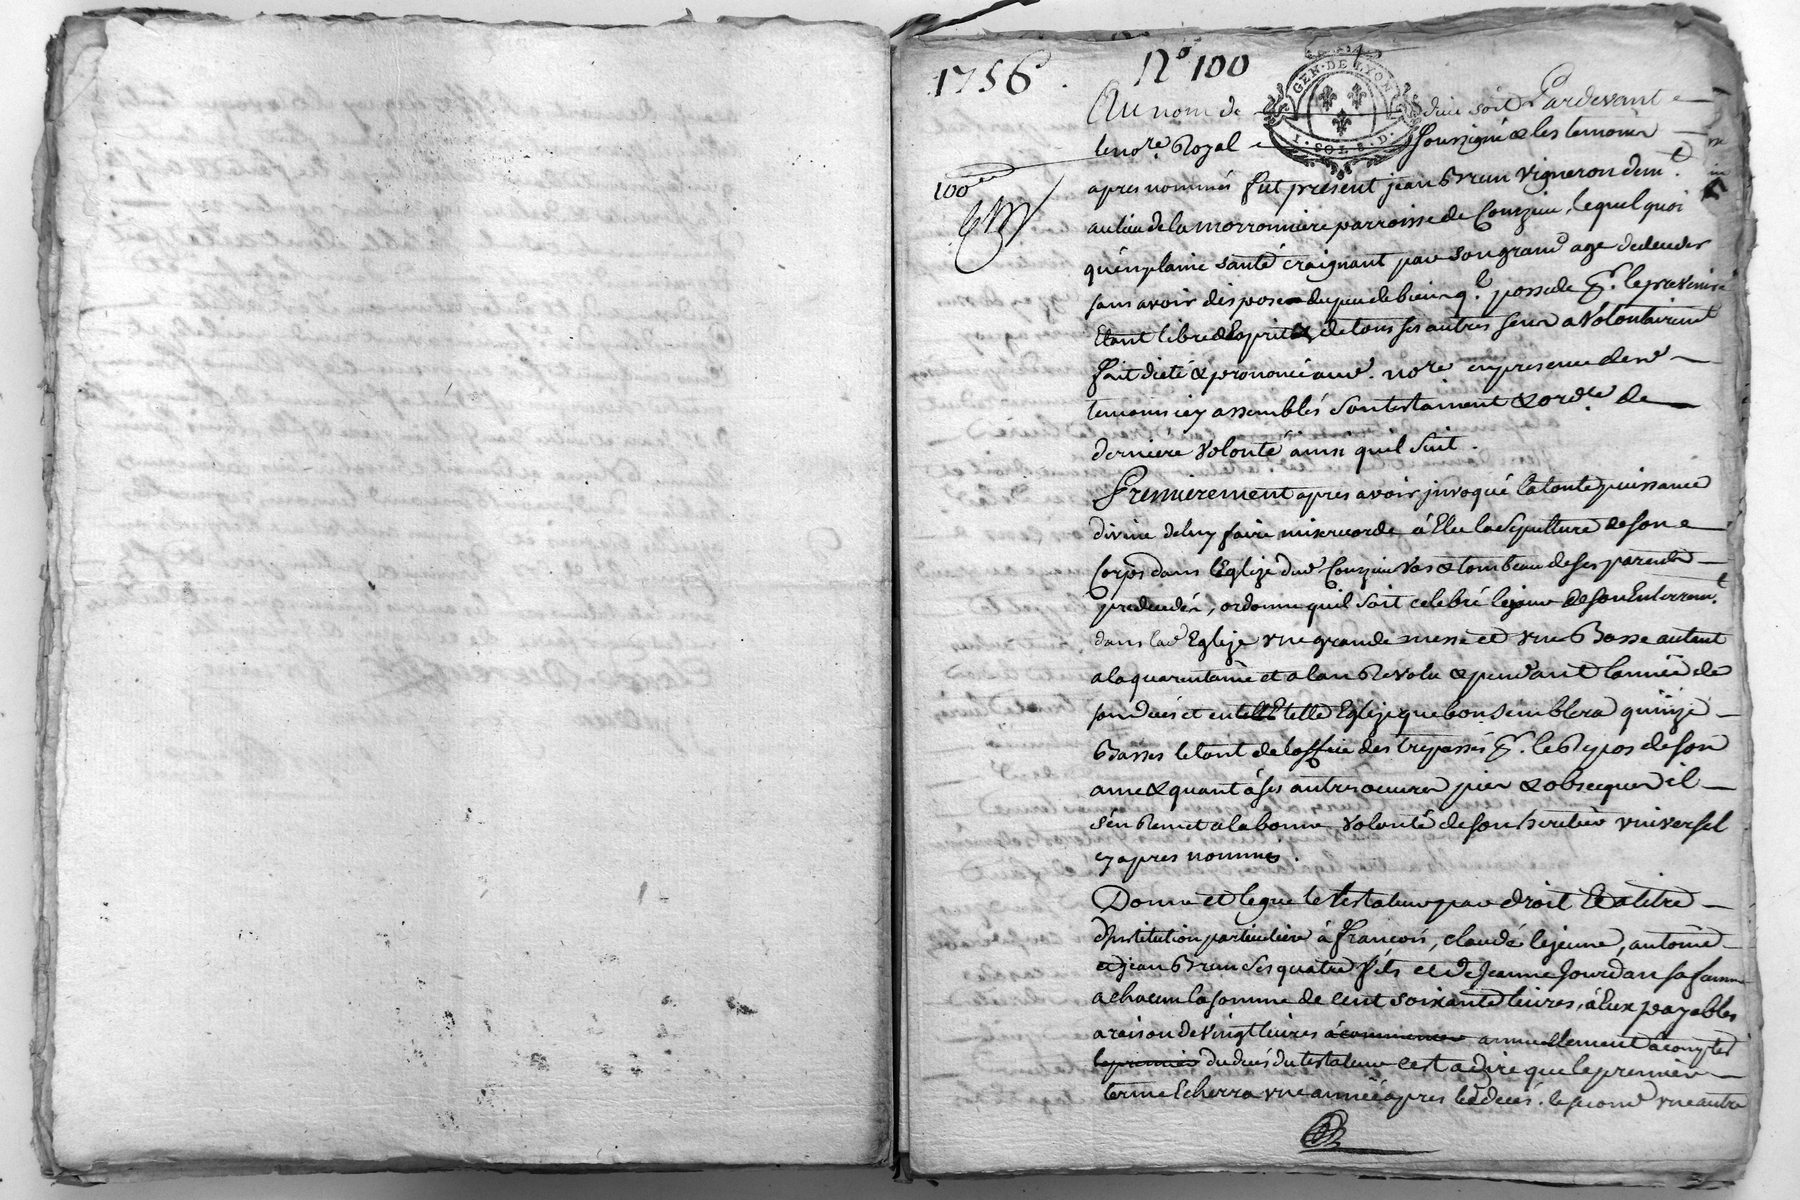 1756. N° 100
GEN · DE LYON
I · SOL 8 · D ·
100
Au nom de dieu soit Pardevant
le no.re Royal soussigné & les temoins
apres nommés fut present jean Brun vigneron dem.t
au lieu de la morronniere parroisse de Courzieu, lequel quoi
qu'en plaine santé craignant par son grand age deceder
sans avoir disposé du peu de biens q.l possede p.r le prevenir
Etant libre d'Esprit & de tous ses autres sens a volontairement
fait dicté & prononcé aud. no.re en presence des
temoins icy assemblés son testament & ord.ce de
derniere volonté ainsi quil suit.
Premierement apres avoir jnvoqué la toute puissance
divine de luy faire misericorde à Elu la sepulture de son
Corps dans l'Eglize dud Courzieu vas & tombeau de ses parents
predecedés, ordonne quil soit celebré le jour de son Enterrem.t
dans lad Eglize vne grande messe et vne Basse autant
a la quarentaine et a lan Revolu & pendant lannée de
son decés et en telle Et telle Eglize que bon semblera quinze
Basses le tout de loffice des trepassés p.r le Repos de son
ame & quant à ses autres oeuvres pies & obseques il
s'en Remet a la bonne volonté de son heritier vniversel
cy apres nommé.
Donne et legue le testateur par droit Et a titre
d'Institution particuliere à francois, claude le jeune, antoine
et jean Brun ses quatre fils et de Jeanne Jourdan sa famme
a chacun la somme de cent soixante livres, à Eux payables
a raison de vingt livres à commencer annuellement à compter
le premier du decés du testateur cest a dire que le premier
terme Echerra vne année apres led decés. le second vne autre